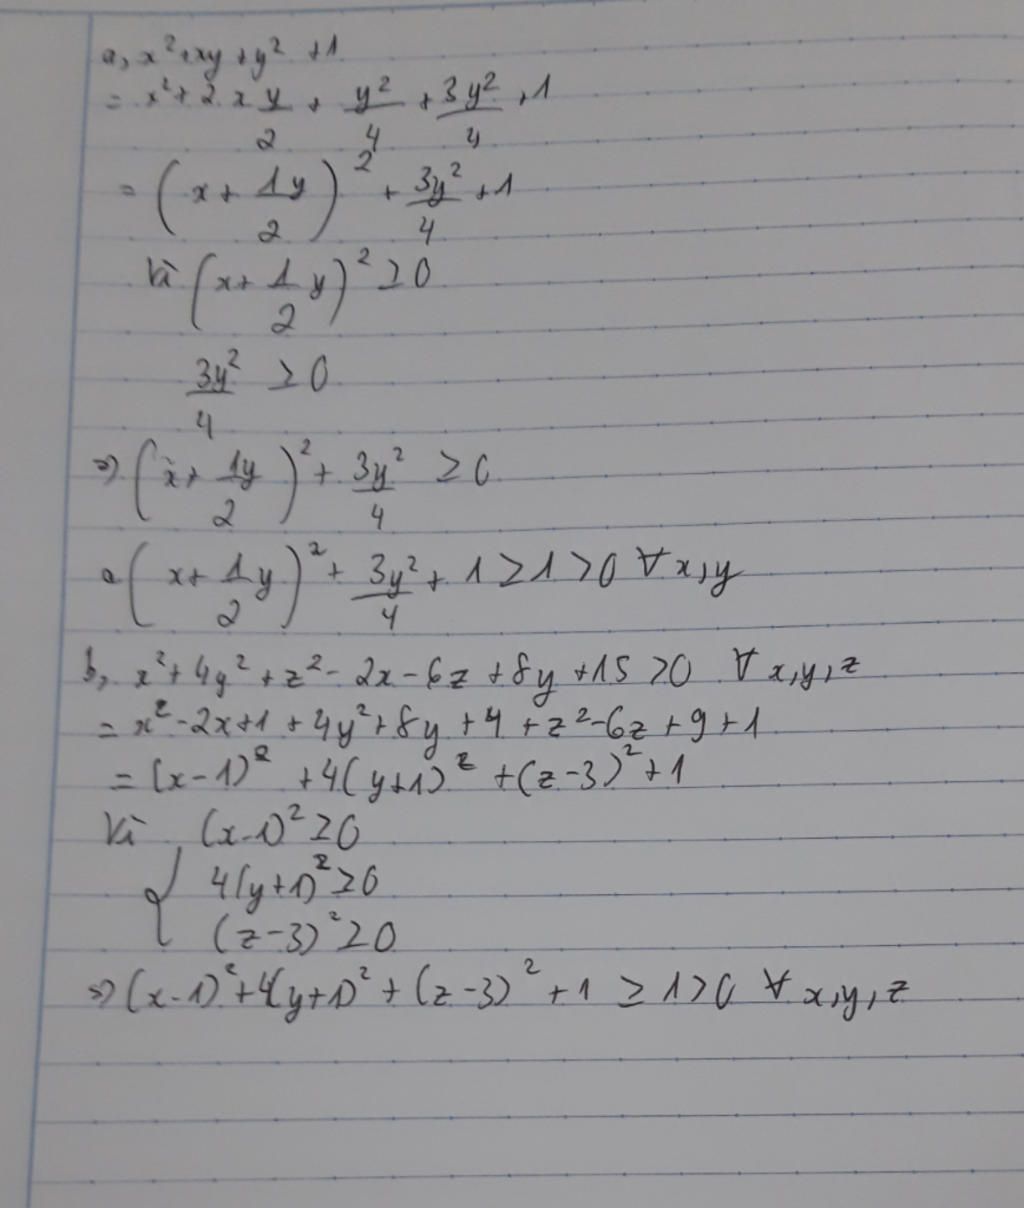 a, x² + xy + y² + 1
= x² + 2.x y/2 + y²/4 + 3y²/4 + 1
= (x + 1y/2)² + 3y²/4 + 1
Vì (x + 1/2 y)² ≥ 0
3y²/4 ≥ 0
=> (x + 1y/2)² + 3y²/4 ≥ 0
(x + 1/2 y)² + 3y²/4 + 1 ≥ 1 > 0 ∀ x, y
b, x² + 4y² + z² - 2x - 6z + 8y + 15 > 0 ∀ x, y, z
= x² - 2x + 1 + 4y² + 8y + 4 + z² - 6z + 9 + 1
= (x - 1)² + 4(y + 1)² + (z - 3)² + 1
Vì { (x - 1)² ≥ 0
4(y + 1)² ≥ 0
(z - 3)² ≥ 0
=> (x - 1)² + 4(y + 1)² + (z - 3)² + 1 ≥ 1 > 0 ∀ x, y, z